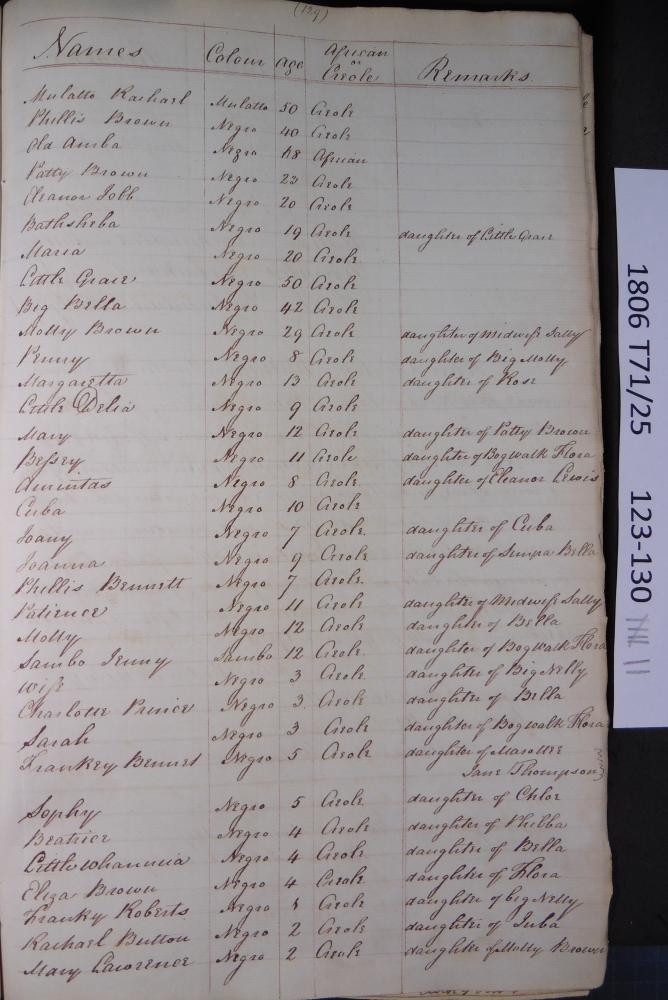 (129)
Names Colour Age African or Creole Remarks
Mulatto Rachael Mulatto 50 Creole
Phillis Brown Negro 40 Creole
Old Amba Negro 48 African
Patty Brown Negro 23 Creole
Eleanor Jobb Negro 20 Creole
Bathsheba Negro 19 Creole daughter of Little Grace
Maria Negro 20 Creole
Little Grace Negro 50 Creole
Big Bella Negro 42 Creole
Molly Brown Negro 29 Creole daughter of Midwife Sally
Penny Negro 8 Creole daughter of Big Molly
Margaretta Negro 13 Creole daughter of Rose
Little Delia Negro 9 Creole
Mary Negro 12 Creole daughter of Patty Brown
Bessey Negro 11 Creole daughter of Bogwalk Flora
Amintas Negro 8 Creole daughter of Eleanor Lewis
Cuba Negro 10 Creole
Joany Negro 7 Creole daughter of Cuba
Joanna Negro 9 Creole daughter of Bella
Phillis Bennett Negro 7 Creole
Patience Negro 11 Creole daughter of Midwife Sally
Molly Negro 12 Creole daughter of Bella
Sambo Jenny Sambo 12 Creole daughter of Bogwalk Flora
Wife Negro 3 Creole daughter of Big Nelly
Charlotte Prince Negro 3 Creole daughter of Bella
Sarah Negro 3 Creole daughter of Bogwalk Flora
Frankey Bennet Negro 5 Creole daughter of
Jane Thompson
Sophy Negro 5 Creole daughter of Chloe
Beatrice Negro 4 Creole daughter of Phibba
Little Negro 4 Creole daughter of Bella
Eliza Brown Negro 4 Creole daughter of Flora
Franky Roberts Negro Creole daughter of big Nelly
Rachael Button Negro 2 Creole daughter of Juba
Mary Lawrence Negro 2 Creole daughter of Molly Brown
1806 T71/25 123-130